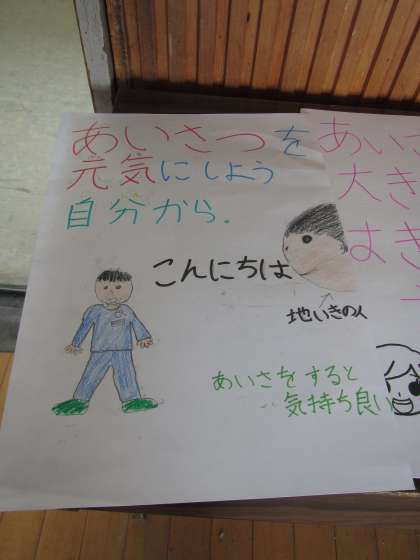 あいさつを
元気にしよう
自分から.
こんにちは
地いきの人
あいさをすると
気持ち良い
あいさ
大き
はき